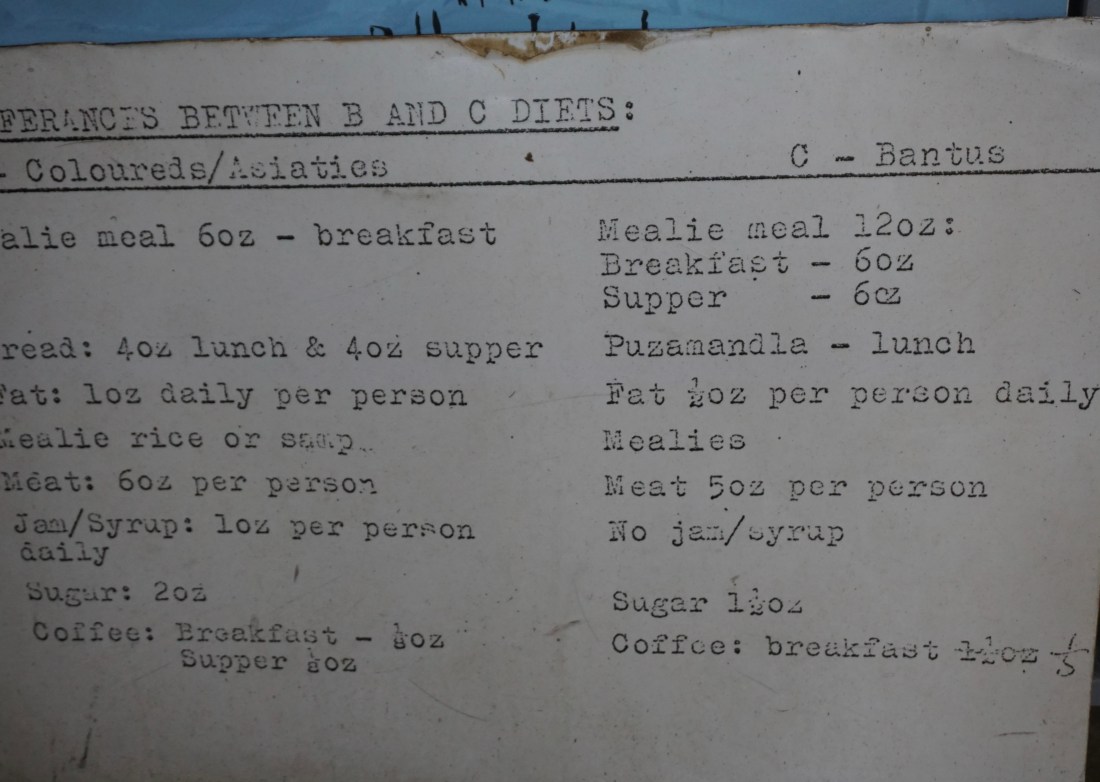 FERANCES BETWEEN B AND C DIETS:
- Coloureds/Asiaties
C - Bantus
alie meal 6oz - breakfast
Mealie meal 12oz:
Breakfast - 6oz
Supper - 6oz
read: 4oz lunch & 4oz supper
Puzamandla - lunch
Fat: 1oz daily per person
Fat ½oz per person daily
Mealie rice or samp
Mealies
Meat: 6oz per person
Meat 5oz per person
Jam/Syrup: 1oz per person
daily
No jam/syrup
Sugar: 2oz
Sugar 1½oz
Coffee: Breakfast -
Supper
Coffee: breakfast